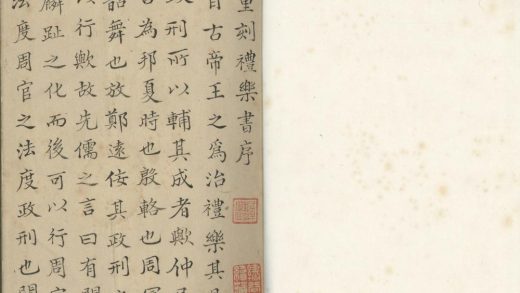 重刻禮樂書序
自古帝王之爲治禮樂其
政刑所以輔其成者歟仲尼
爲邦夏時也殷輅也周冕
韶舞也放鄭遠佞其政刑
以行歟故先儒之言曰有關
麟趾之化而後可以行周官
法度周官之法度政刑也關